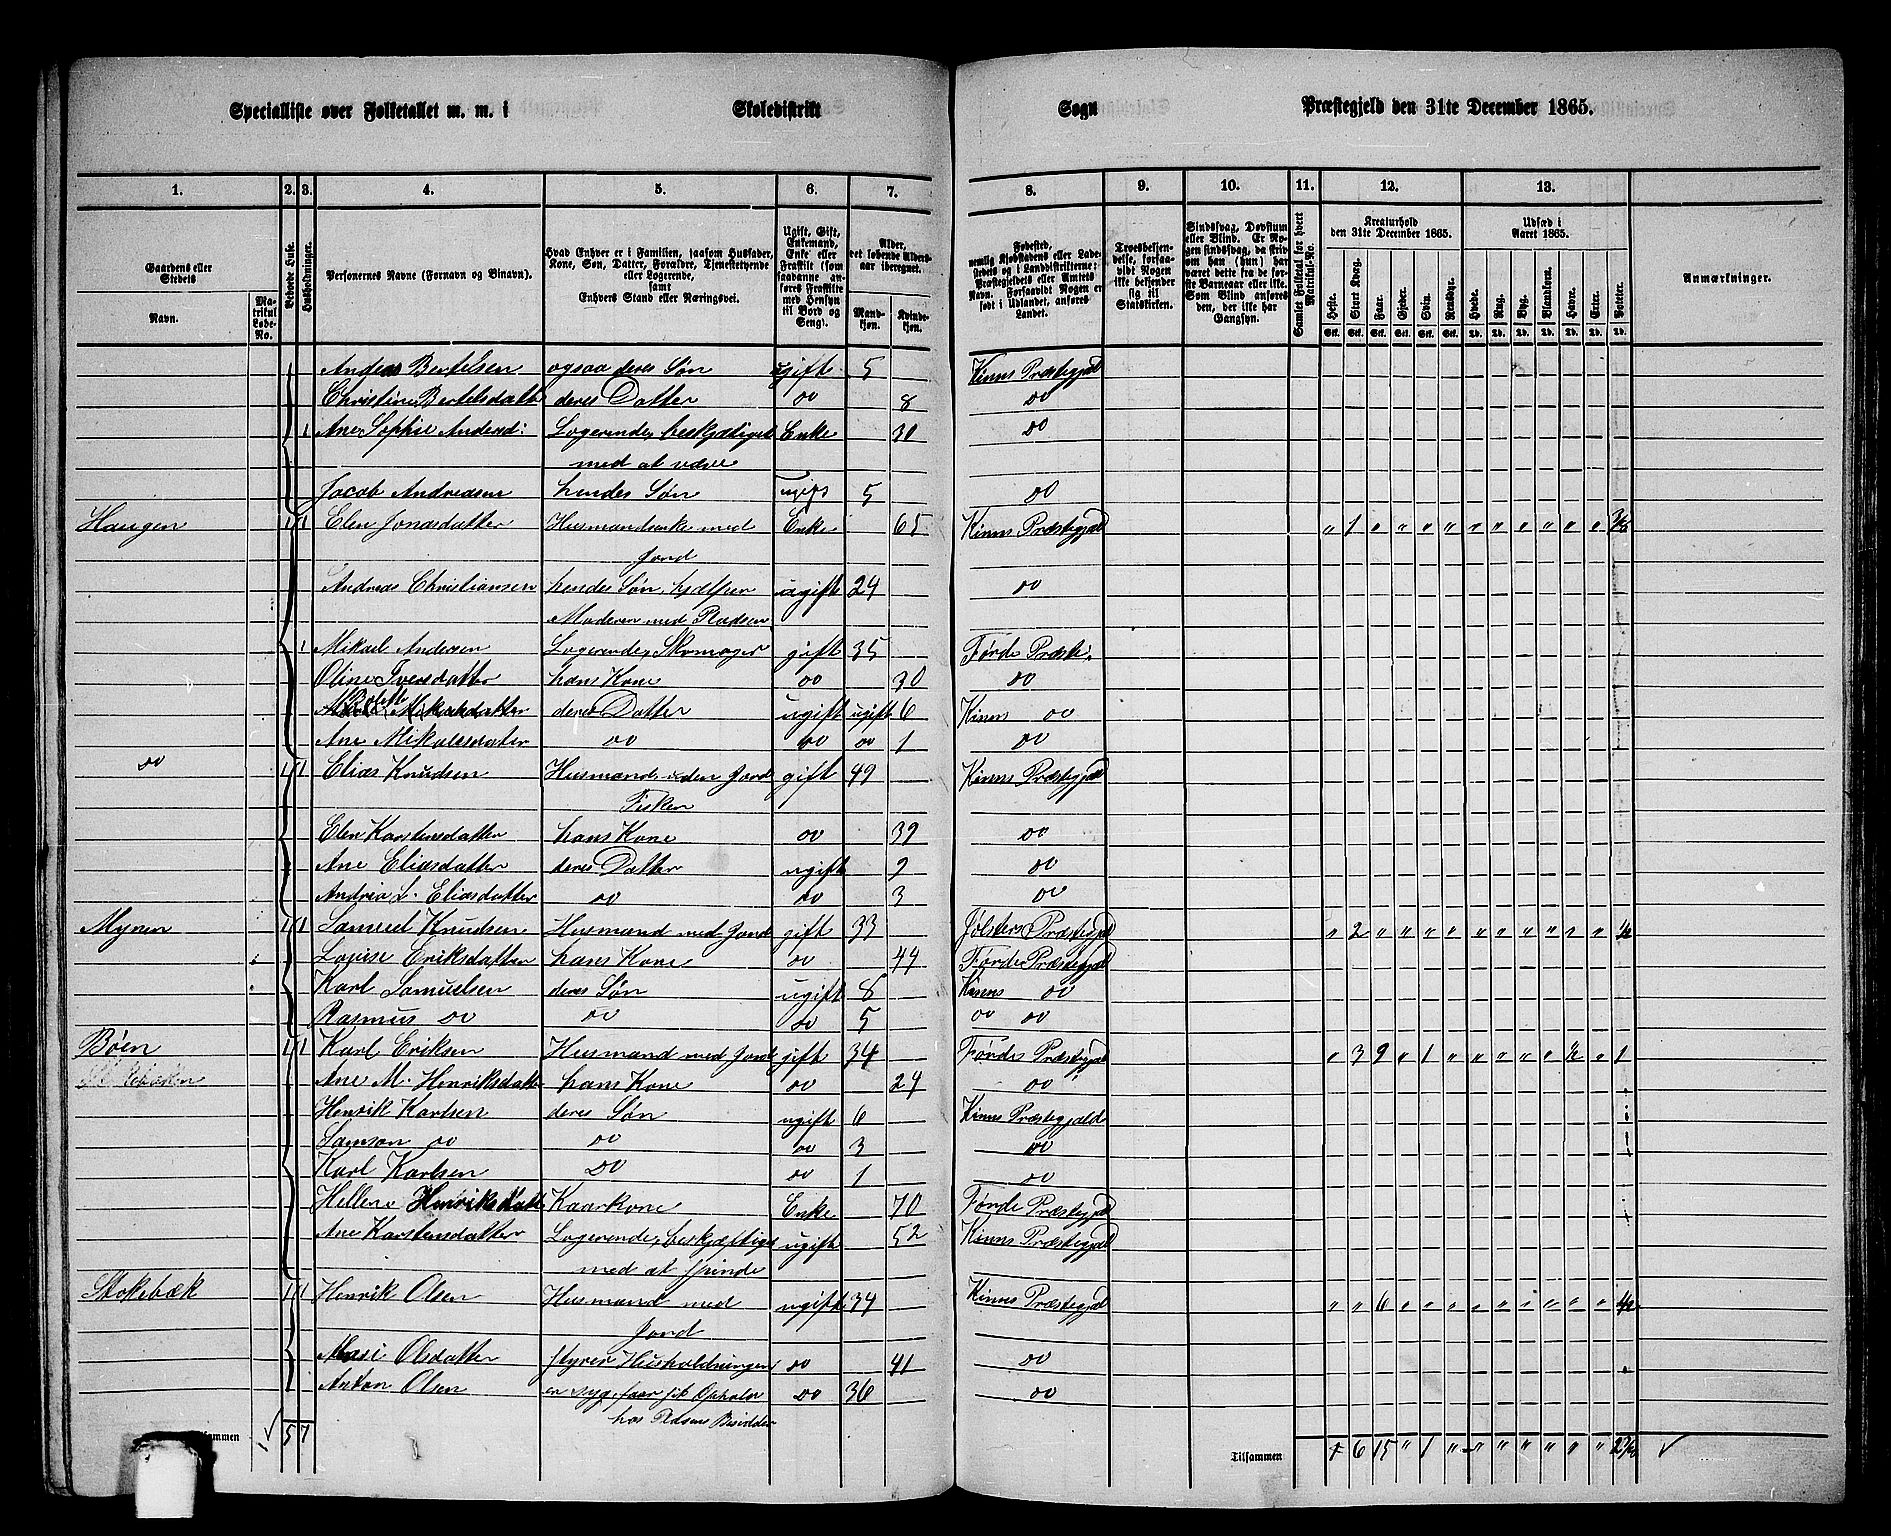 Specialliste over Folketallet m. m. i Skoledistrikt Sogn Præstegjeld den 31te December 1865.
1. 2. 3. 4. 5. 6. 7. 8. 9. 10. 11. 12. 13.
Gaardens eller Stedets Navn.
Matrikul Løbe-No.
Beboede Huse.
Husholdninger.
Personernes Navne (Fornavn og Binavn).
Hvad Enhver er i Familien, saasom Husfader, Kone, Søn, Datter, Forældre, Tjenestetyende eller Logerende, samt Enhvers Stand eller Næringsvei.
Ugift, Gift, Enkemand, Enke eller Fraskilt (som saadanne anføres Fraskilte med Hensyn til Bord og Seng).
Alder, det løbende Alders-aar iberegnet.
Mandkjøn. Kvindekjøn.
Fødested, nemlig Kjøbstadens eller Ladestedets og i Landdistrikterne: Præstegjeldets eller Amtets Navn. Forsaavidt Nogen er født i Udlandet, anføres Landet.
Troesbekjendelse, forsaavidt Nogen ikke bekjender sig til Statskirken.
Sindssvag, Døvstum eller Blind. Er Nogen sindssvag, da hvorvidt han (hun) har været dette fra de første Barneaar eller ikke. Som Blind anføres den, der ikke har Gangsyn.
Samlet Folketal for hvert Matrikul-No.
Kreaturhold den 31te December 1865.
Heste. Stort Kvæg. Faar. Gjeder. Svin. Rensdyr.
Udsæd i Aaret 1865.
Hvede. Rug. Byg. Blandkorn. Havre. Erter. Poteter.
Anmærkninger.
Andeas Bertelsen ogsaa deres Søn ugift 5 Kinns Præstegjæl
Christine Bertelsdatt deres Datter do 8 do
1 Ane Sophie Andersd: Logerende, beskjætiget Enke 30 do
med at væve
Jacob Andreasen hendes Søn ugift 5 do
Haugen 1 1 Elen Jonasdatter Husmandsenke med Enke 65 Kinns Præstegjæl " 1 " " " " " " " " " " 3/8
Jord
Andreas Christiansen hendes Søn, hjælper ugift 24 do
Moderen med Pladsen
1 Mikael Andersen Logerende, Skomager gift 35 Førde Præste:
Oline Iversdatter hans Kone do 30 do
Mikaelsdatter deres Datter ugift ugift 6 Kinns do
Ane Mikaelsdatter do do do 1 do
do 1 1 Elias Knudsen Husmand uden Jord gift 49 Kinns Præstegjæl
Fisker
Elen Karstensdatter hans Kone do 39 do
Ane Eliasdatter deres Datter ugift 9 do
Andrea L. Eliasdatter do do 3 do
Myren 1 1 Samuel Knudsen Husmand med Jord gift 33 Jølsters Præstegjæl " 2 " " " " " " " " " "
Lovise Eriksdatter hans Kone do 44 Førdes Præstegjæl
Karl Samuelsen deres Søn ugift 8 Kinns do
Rasmus do do do 5 do do
Bøen 1 1 Karl Eriksen Husmand med Jord gift 34 Førdes Præstegjæl " 3 9 " 1 " " " " 1/2 " 1
Ane M. Henriksdatt hans Kone do 24 do
Henrik Karlsen deres Søn ugift 6 Kinns Præstegjæld
Samson do do do 3 do
Karl Karlsen do do 1 do
Hellene Henriksdatt Kaarkone Enke 70 Førde Præstegjæl
Ane Karstensdatter Logerende, beskjæftiget ugift 52 Kinns Præstegjæl
med at spinde
Stokebæk 1 1 Henrik Olsen Husmand med ugift 34 Kinns Præstegjæl " " 6 " " " " " " " "
Jord
Mari Olsdatter styrer Husholdningen do 41 do
Anton Olsen er syg, faar sit Ophold do 36 do
hos Pladsens Besidder
5 7
Tilsammen 6 15 " 1 " " " " " " "